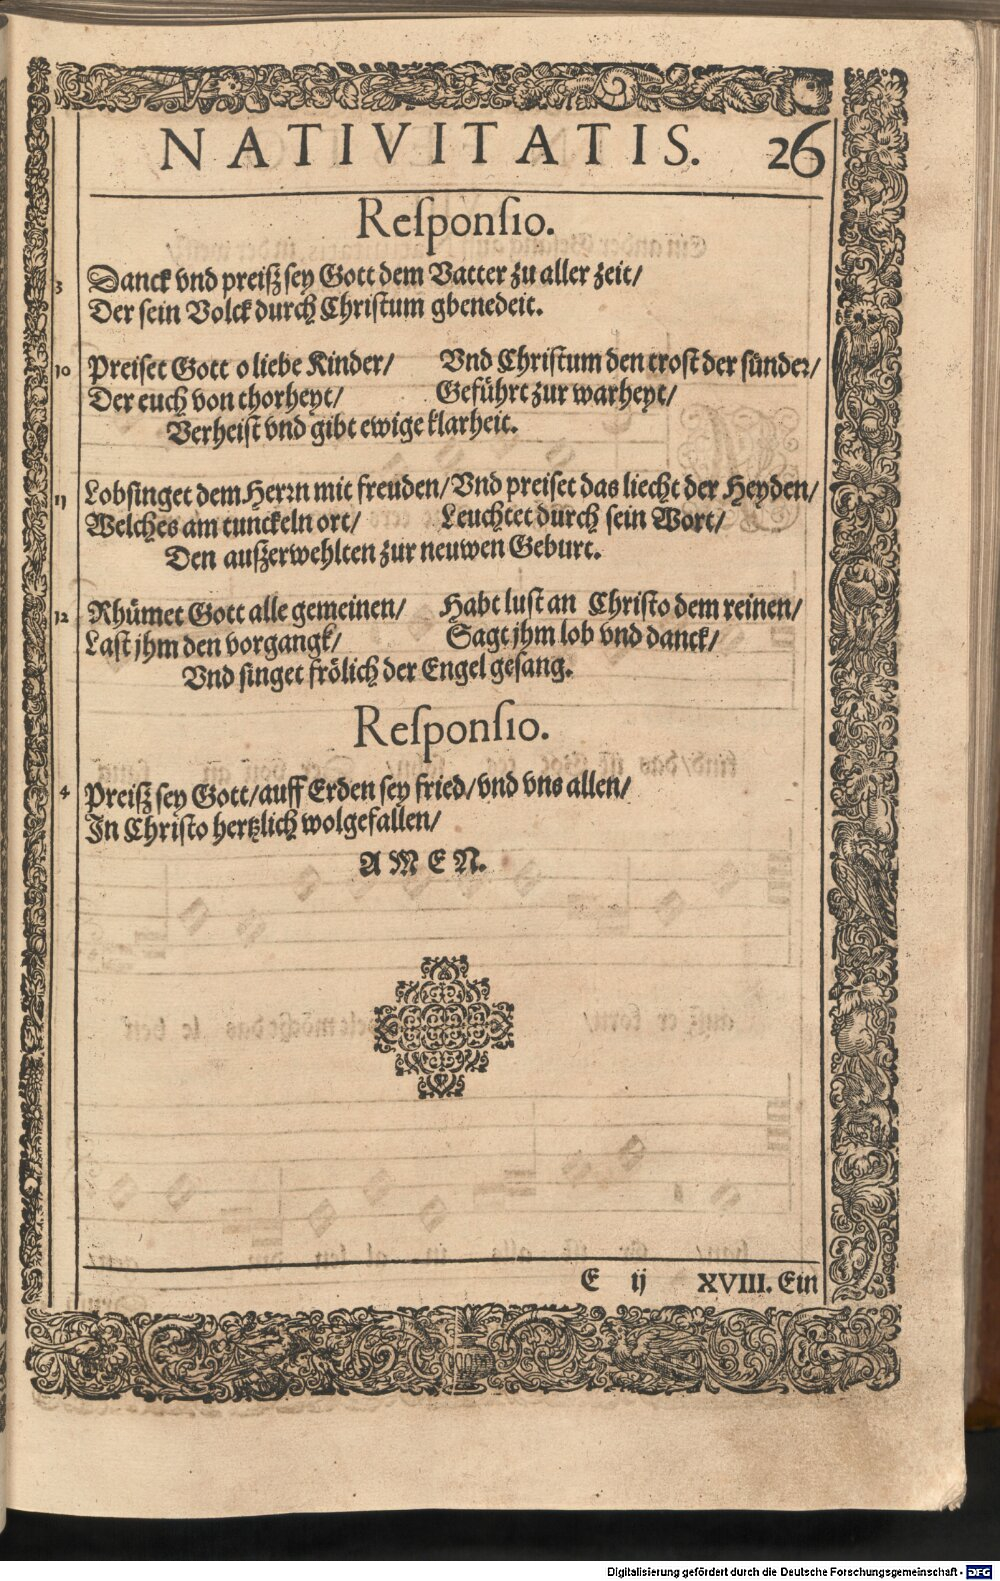 NATIVITATIS. 26
Reſponſio.
3 Danck vnd preiſz ſey Gott dem Vatter zu aller zeit/
Der ſein Volck durch Chriſtum gbenedeit.
10 Preiſet Gott o liebe Kinder/ Vnd Chriſtum den troſt der ſünder/
Der euch von thorheyt/ Geführt zur warheyt/
Verheiſt vnd gibt ewige klarheit.
11 Lobſinget dem Herrn mit freuden/ Vnd preiſet das liecht der Heyden/
Welches am tunckeln ort/ Leuchtet durch ſein Wort/
Den auſzerwehlten zur neuwen Geburt.
12 Rhümet Gott alle gemeinen/ Habt luſt an Chriſto dem reinen/
Laſt jhm den vorgangk/ Sagt jhm lob vnd danck/
Vnd ſinget frölich der Engel geſang.
Reſponſio.
4 Preiſz ſey Gott/ auff Erden ſey fried/ vnd vns allen/
In Chriſto hertzlich wolgefallen/
AMEN.
E ij XVIII. Ein
Digitalisierung gefördert durch die Deutsche Forschungsgemeinschaft - DFG